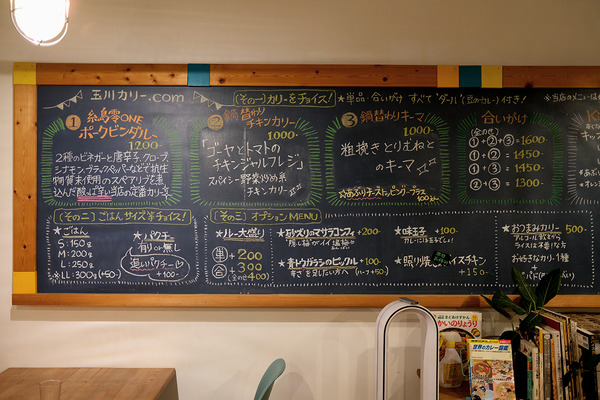 玉川カリー.com
(その一)カリーをチョイス!
★単品・合いがけ すべて"ダール"(豆のカレー)付き!
① 糸島雫ONE
ポークビンダルー
1200-
2種のビネガーと唐辛子、クローブ
シナモン、ブラックペッパーなどで
物質未使用のスペアリブを煮
込んだ酸っぱ辛い当店の定番カリー
② 鍋替わり
チキンカリー
1000-
「ゴーヤとトマトの
チキンジャルフレジ」
スパイシー野菜炒め系
チキンカリー
③ 鍋替わりキーマ
1000-
粗挽きとりむねと
のキーマ
☆あぶりチーズトッピングプラス
100-
合いがけ
(全のせ)
①+②+③=1600-
①+②=1450-
①+③=1450-
②+③=1300-
(その二)ごはんサイズ&チョイス!
★ごはん
S:150g
M:200g
L:250g
LL:300g(+50-)
★パクチー
有りor無し
追いパクチー
+100-
(その三)オプションMENU
★ルー大盛り
単+200
合+300
(全のせ400)
+200
★青トウガラシのピックル+100-
辛さを足したい方へ
(ハーフ+50)
★味玉子+100-
★照り焼き
スチキン
+150-
★おつまみカリー 500-
ライスは不要!な方
お好きなカリー1種
+
世界のカレー図鑑